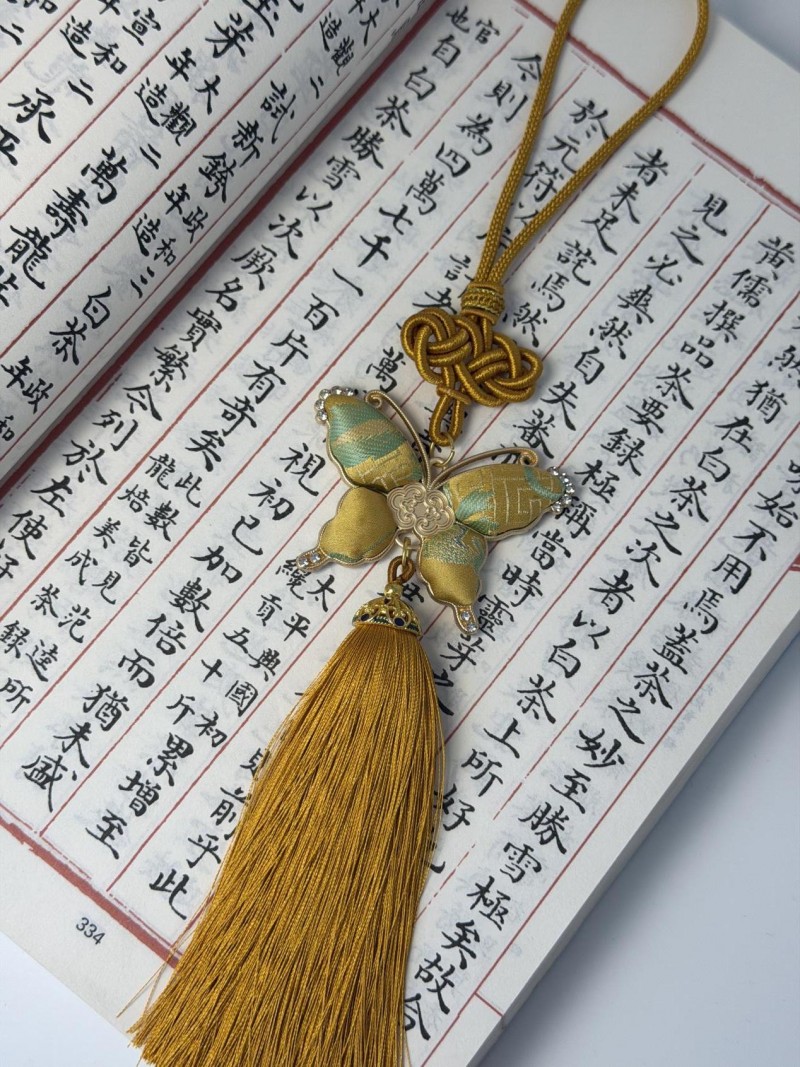 始不用焉蓋茶之妙至勝雪極矣故合
然猶在白茶之次者以白茶上所好
黃儒撰品茶要錄極稱當時靈芽之
見之必爽然自失蕃
前乎此
者未足詫焉然
太平興國初
貢五十斤
累增至
於元符以
計者
萬
視初已加數倍而猶未盛
今則為四萬七千一百片有奇矣
此數皆見范逵所
龍焙美成茶錄
官
也
自白茶勝雪以次厥名實繁今列於左使好
大觀二
年造
試新銙
政和二
年造
白茶
政和
年
大觀二
年造
萬壽龍
宣和二
年造
承平
334